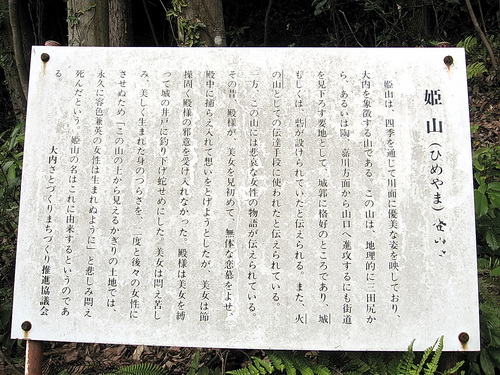 姫山（ひめやま）
姫山は、四季を通じて川面に優美な姿を映しており、
大内を象徴する山である。この山は、地理的に三田尻か
ら、あるいは陶、嘉川方面から山口へ進攻するにも街道
を見下ろす要地として、城郭に格好のところであり、城
もしくは、砦が設けられていたと伝えられる。また、火
の山としての伝達手段に使われたと伝えられている。
一方、この山には悲哀な女性の物語が伝えられている。
その昔、殿様が、美女を見初めて、無体な恋慕をよせ、
殿中に捕らえ入れて想いをとげようとしたが、美女は節
操固く殿様の邪意を受け入れなかった。殿様は美女を縛
って城の井戸に釣り下げ蛇せめにした。美女は悶え苦し
み、美しく生まれた身のつらさを、二度と後々の女性に
させぬため「この山の上から見えるかぎりの土地では、
永久に容色兼英の女性は生まれぬように」と悲しみ悶え
死んだという。姫山の名はこれに由来するというのであ
る。
大内さとづくりまちづくり推進協議会